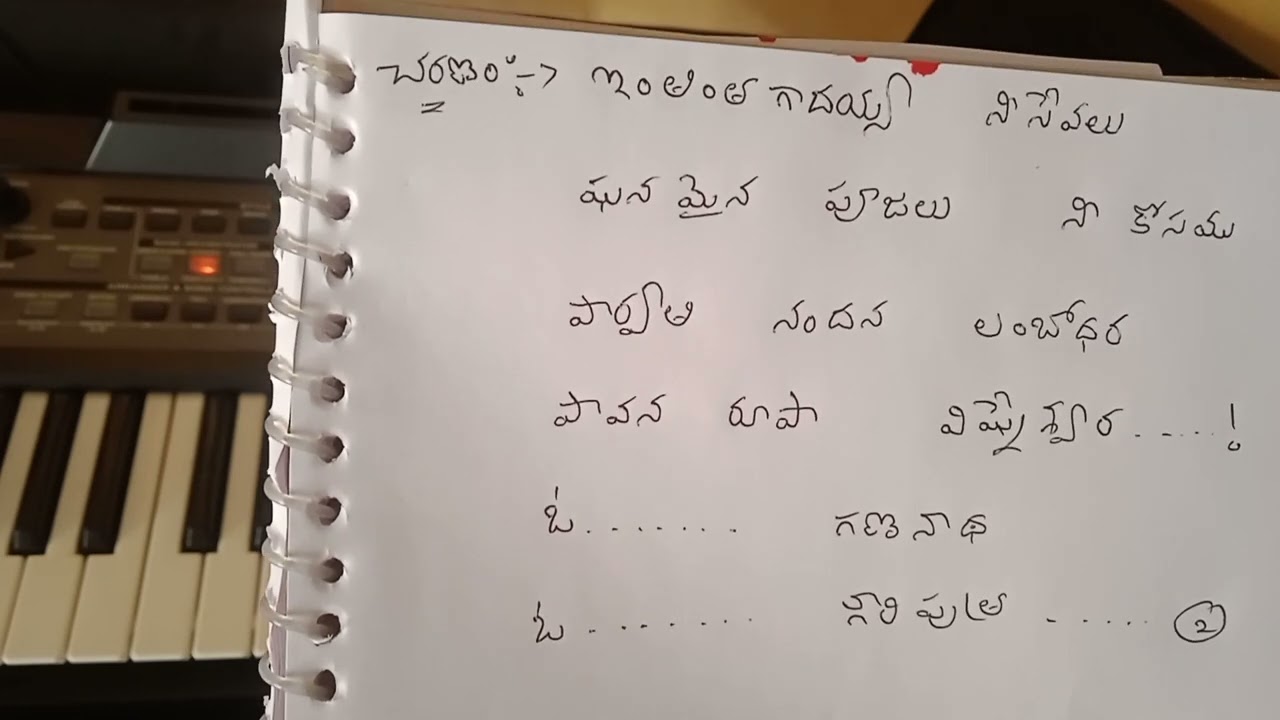 చరణం :-> ఇంతింత గాదయ్యా నీ సేవలు
ఘనమైన పూజలు నీ కోసము
పార్వతి నందన లంబోధర
పావన రూపా విఘ్నేశ్వర.....!
ఓ....... గణనాథ
ఓ....... గౌరి పుత్ర ..... 2